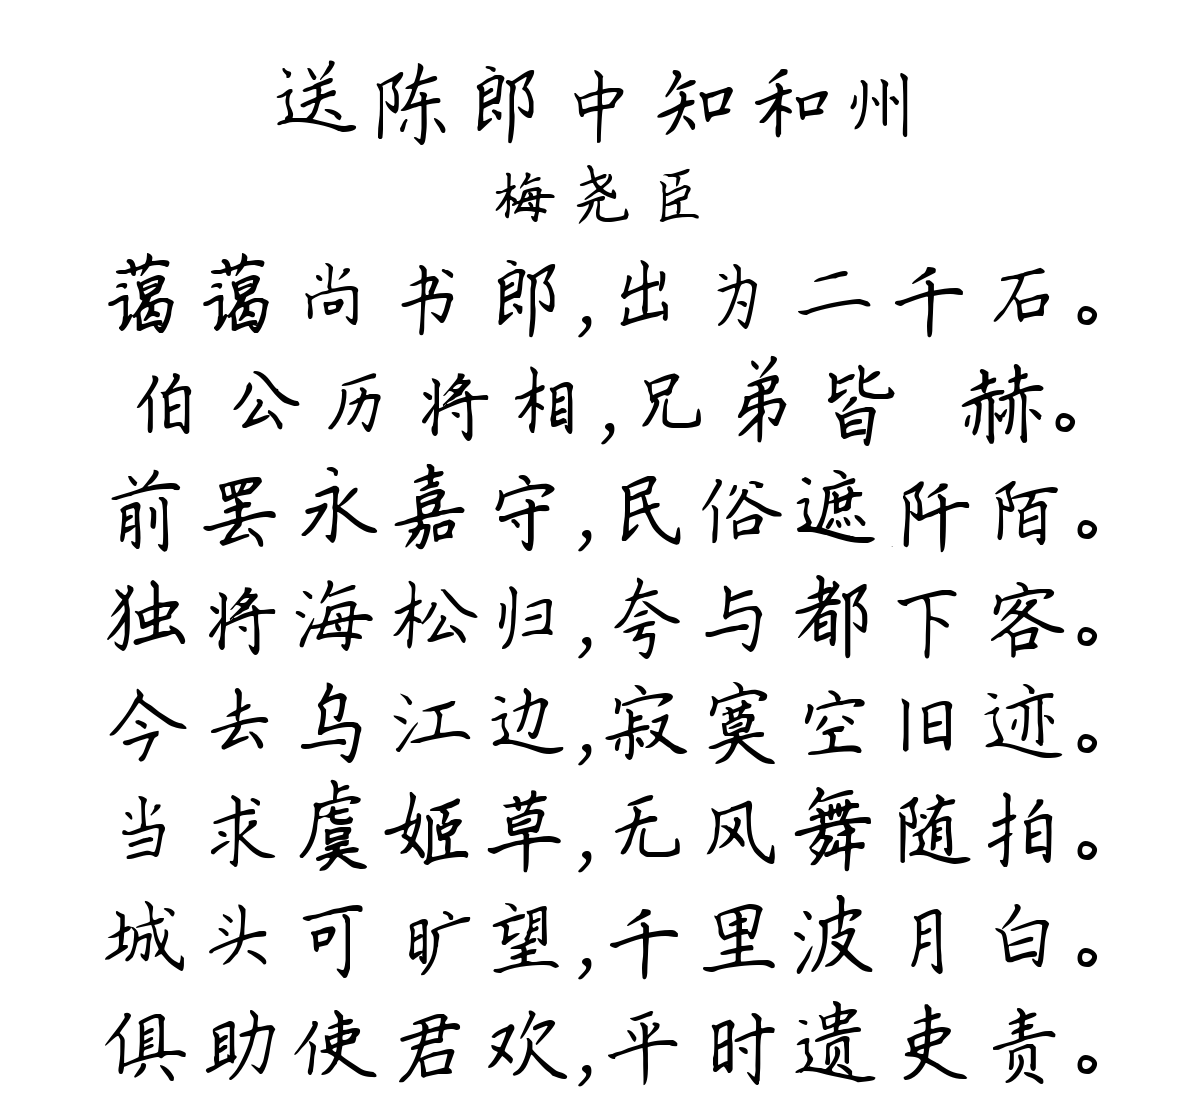 送陈郎中知和州
梅尧臣
蔼蔼尚书郎,出为二千石。
伯公历将相,兄弟皆 赫。
前罢永嘉守,民俗遮阡陌。
独将海松归,夸与都下客。
今去乌江边,寂寞空旧迹。
当求虞姬草,无风舞随拍。
城头可旷望,千里波月白。
俱助使君欢,平时遗吏责。